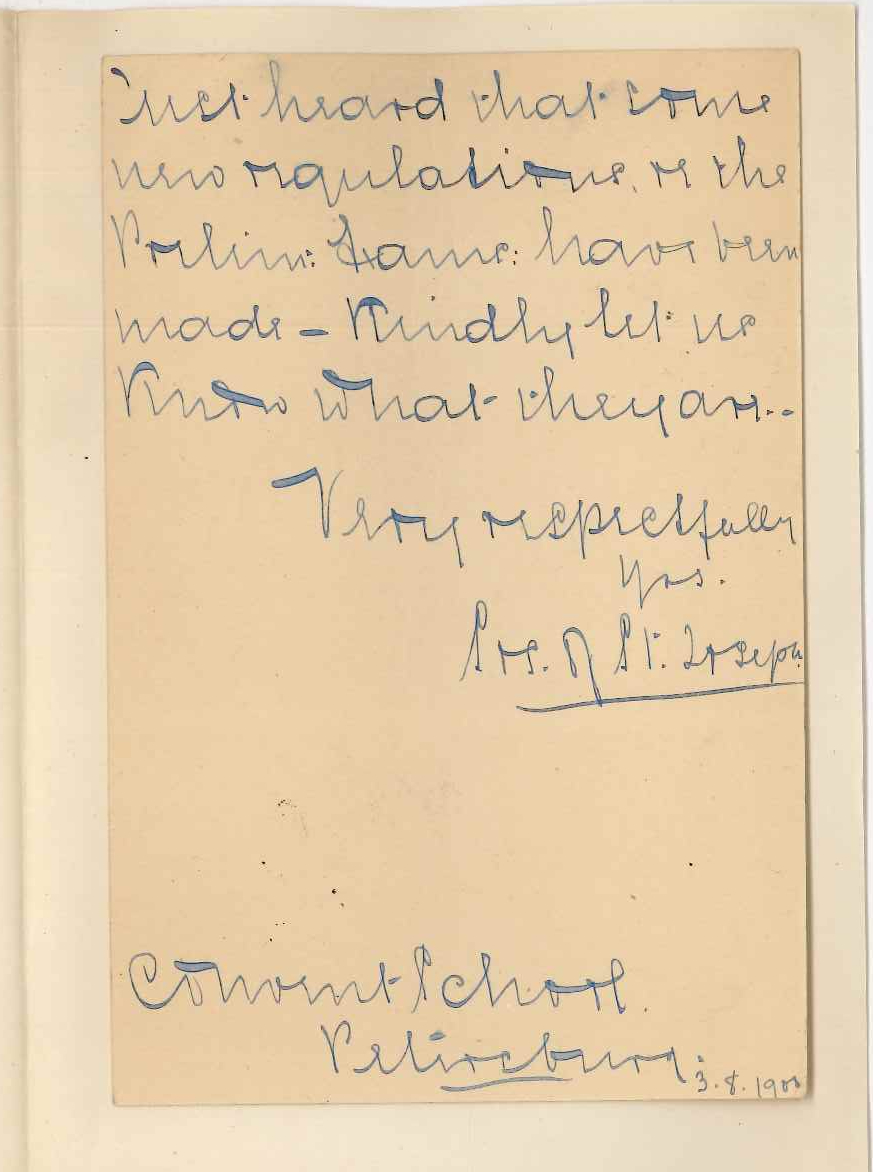 Just heard that some
new regulations, re the
Prelim: Exams: have been
made – Kindly let us
Know what they are..
Very respectfully
Yrs.
Srs. of St. Joseph
Convent School.
Petersburg.
3.8.190